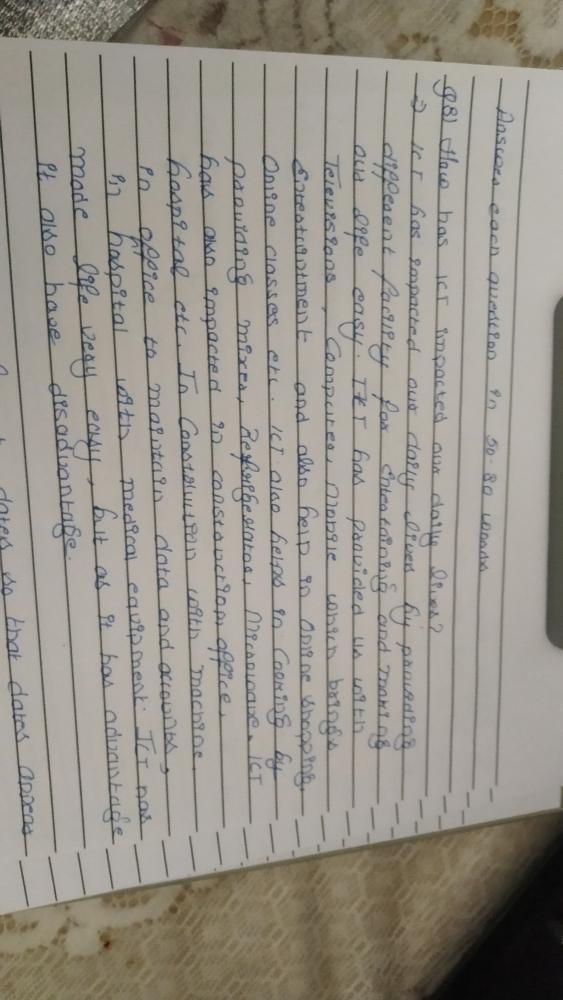 Answer each question in 50-80 words
Q8) How has ICT impacted our daily lives?
→ ICT has impacted our daily lives by providing
different facility for entertaining and making
our life easy. ICT has provided us with
Televisions, Computer, Mobile which brings
Entertainment and also help in Online shopping,
Online classes etc. ICT also helps in Cooking by
providing mixer, Refrigerator, Microwave. ICT
has also impacted in construction, office,
hospital etc. In Construction with machine,
in office to maintain data and accounts,
in hospital with medical equipment. ICT has
made life very easy, but as it has advantage
it also have disadvantage.
dates so that dates appear